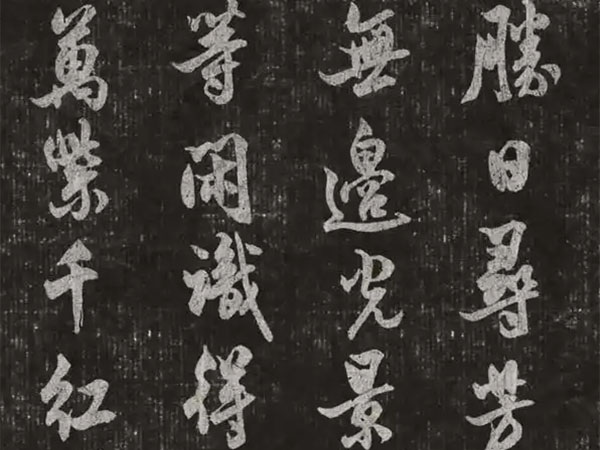 勝日尋芳
無邊光景
等閑識得
萬紫千紅